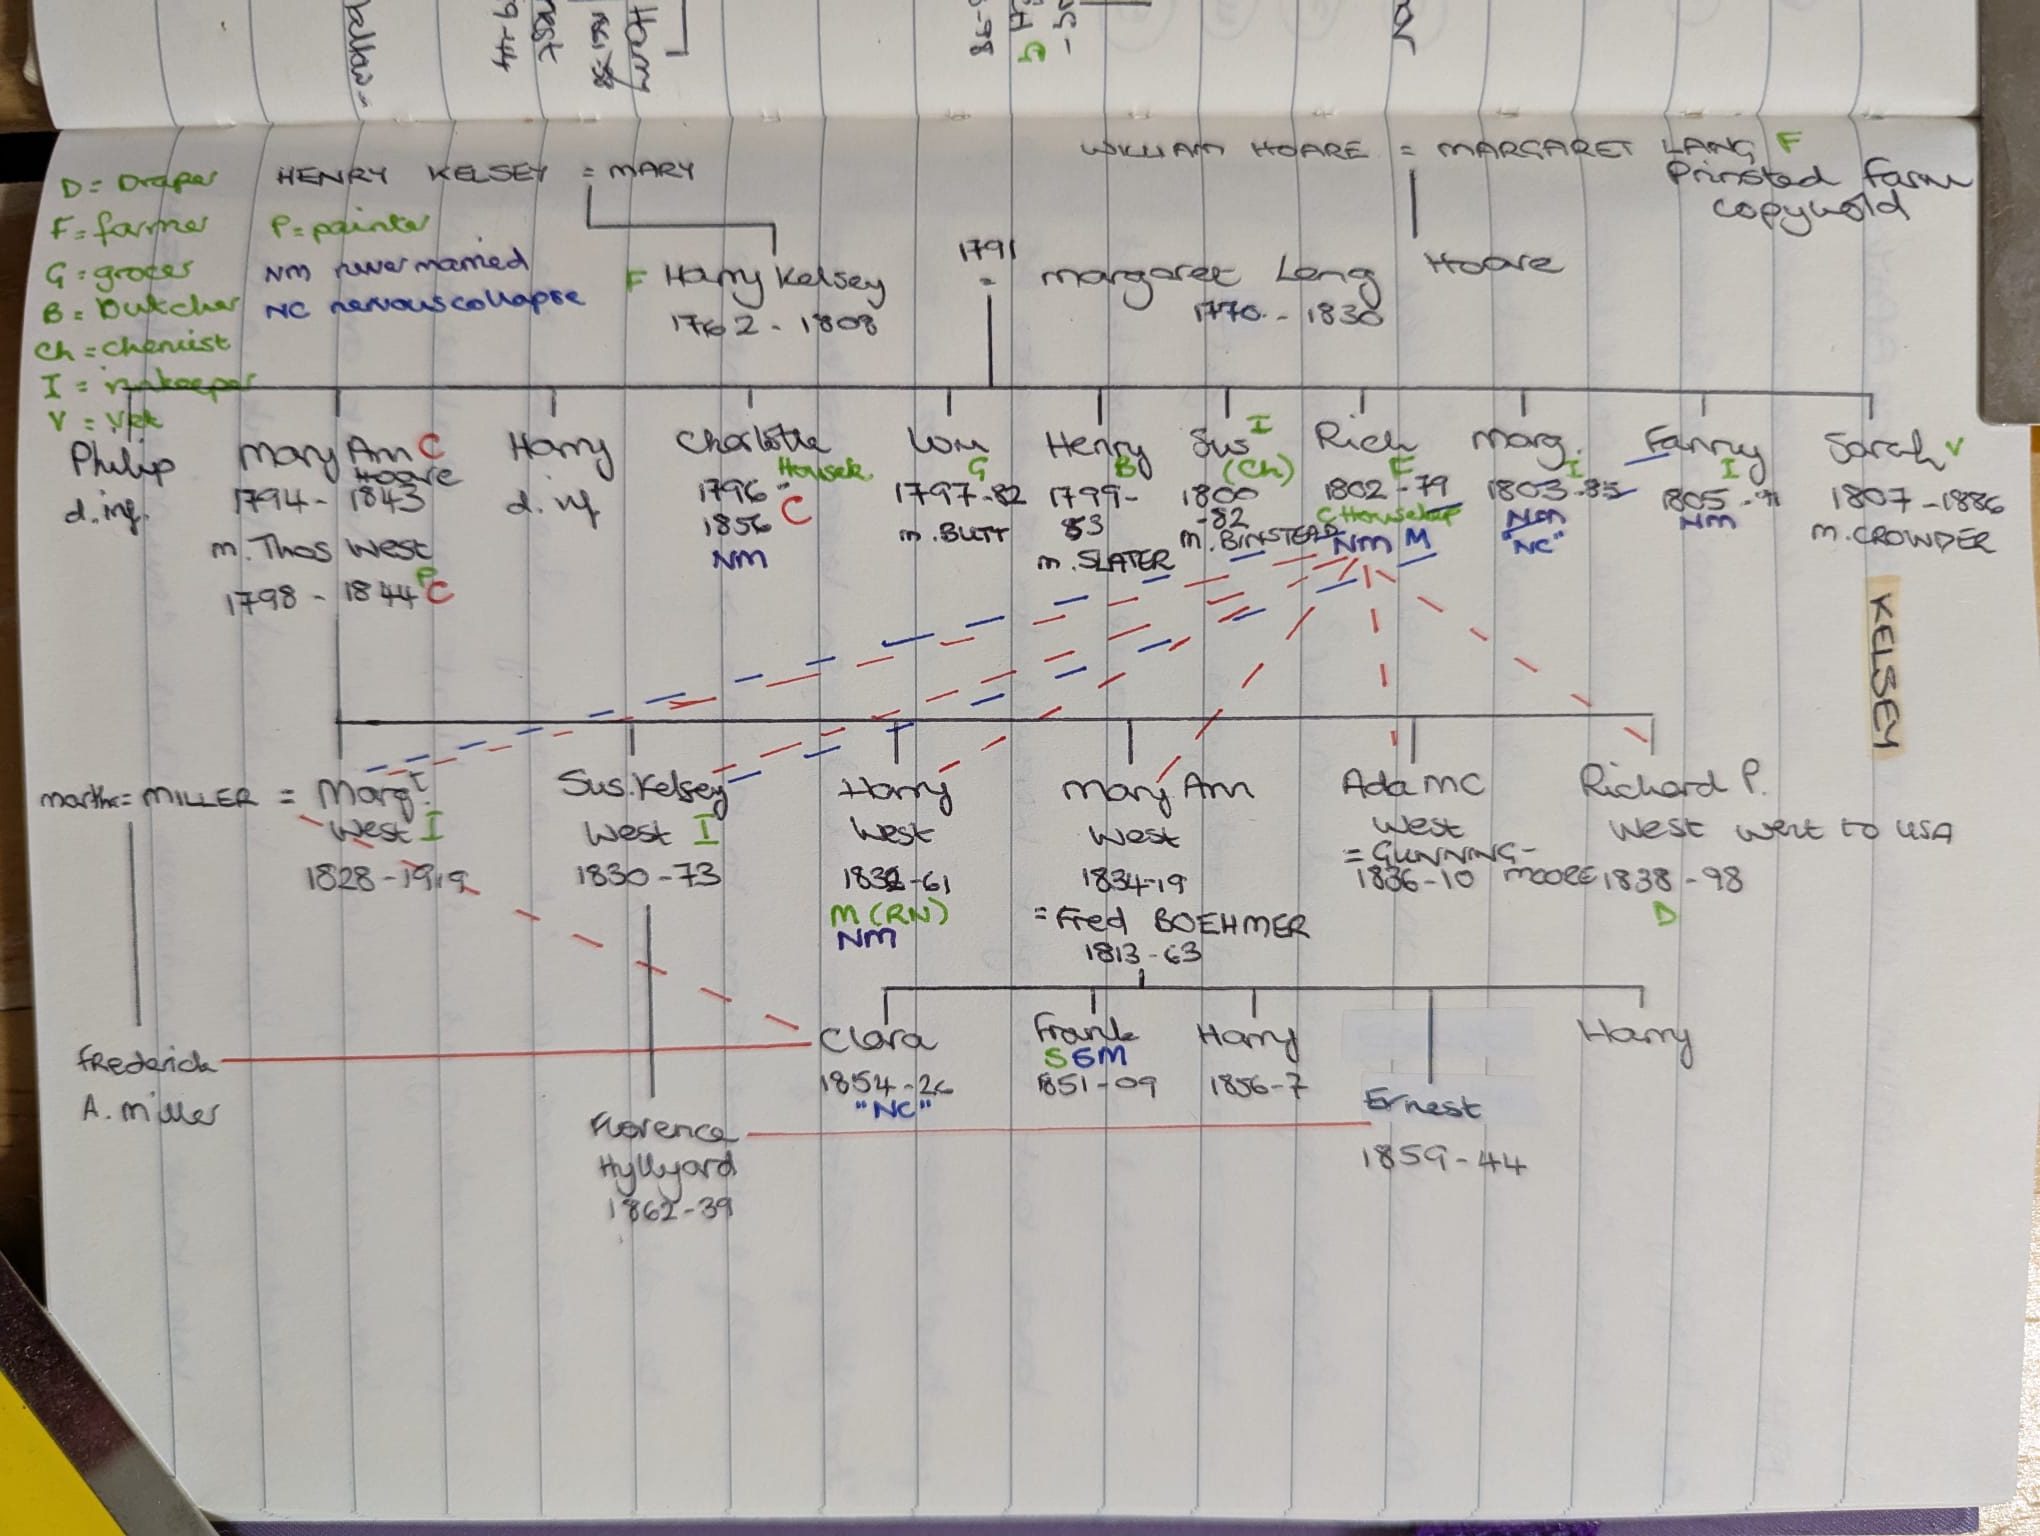 D = Draper
F = farmer
G = grocer
B = Butcher
Ch = chemist
I = innkeeper
V = Vet
P = painter
NM never married
NC nervous collapse
HENRY KELSEY = MARY
WILLIAM HOARE = MARGARET LANG F
Prinsted Farm
copyhold
F Harry Kelsey
1762 - 1808
1791
=
Margaret Lang Hoare
1770 - 1830
Philip
d. inf.
Mary Ann C
Hoare
1794 - 1843
m. Thos West
P
1798 - 1844 C
Harry
d. inf
Charlotte
Housek.
1796 -
1856 C
NM
Wm
G
1797-82
m. BUTT
Henry
B
1799-
83
m. SLATER
Sus I
(Ch)
1800
-82
m. BINSTEAD
Rich
F
1802-79
C Housekeep
NM M
Marg.
I
1803-85
NM
"NC"
Fanny
I
1805-91
NM
Sarah V
1807-1886
m. CROWDER
KELSEY
Martha = MILLER = Margt.
West I
1828-1919
Sus. Kelsey
West I
1830-73
Harry
West
1832-61
M (RN)
NM
Mary Ann
West
1834-19
= Fred BOEHMER
1813-63
Ada MC
West
= GUNNING-
1836-10 MOORE
Richard P.
West went to USA
1838-98
D
Frederick
A. Miller
Clara
1854-26
"NC"
Frank
S SM
1851-09
Harry
1856-7
Ernest
1859-44
Harry
Florence
Hyllyard
1862-39